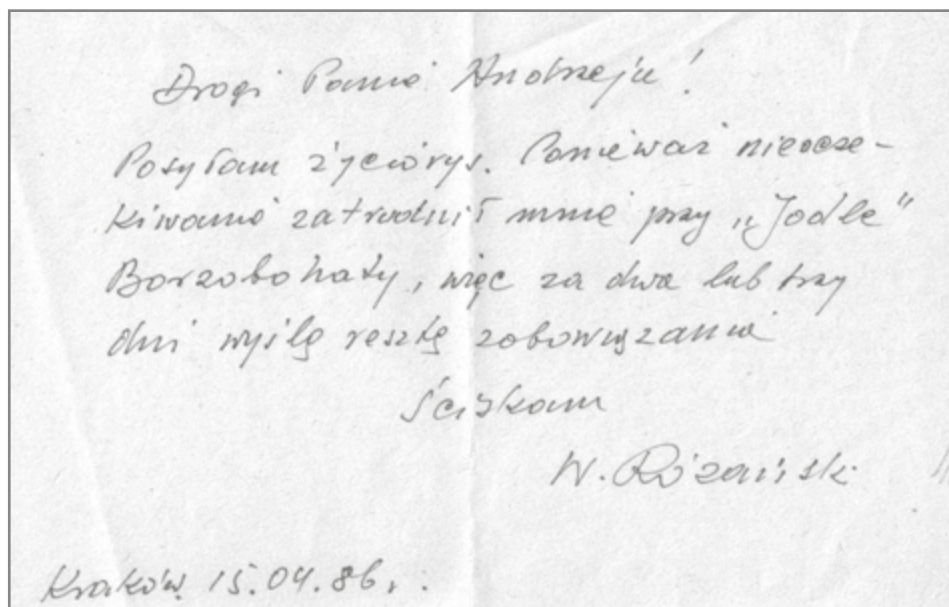 Drogi Panie Andrzeju!
Posyłam życiorys. Ponieważ nieocze-
kiwanie zatrudnił mnie przy „Jodle"
Borzobohaty, więc za dwa lub trzy
dni wyślę resztę zobowiązania
Ściskam
W. Różański
Kraków 15.04.86.